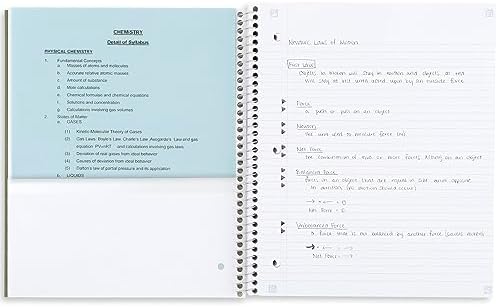 CHEMISTRY
Detail of Syllabus
PHYSICAL CHEMISTRY
1. Fundamental Concepts
a. Masses of atoms and molecules
b. Accurate relative atomic masses
c. Amount of substance
d. Mole calculations
e. Chemical formulae and chemical equations
f. Solutions and concentration
g. Calculations involving gas volumes
2. States of Matter
a. GASES
(1) Kinetic-Molecular Theory of Gases
(2) Gas Laws: Boyle's Law, Charle's Law, Avogardo's Law and gas
equation PV=nRT and calculations involving gas laws
(3) Deviation of real gases from ideal behavior
(4) Causes of deviation from ideal behavior
(5) Dalton's law of partial pressure and its application
b. LIQUIDS
Newtons Laws of Motion
First Law
Objects in motion will stay in motion and objects at rest
will stay at rest until acted upon by an outside force
Force
a push or pull on an object
Newton
unit used to measure force
Net Force
the combination of two or more forces acting on an object
Balanced Force
forces on an object that are equal in size and opposite
in direction
→ ← = 0
Net Force = 0
Unbalanced Force
a force that is not balanced by another force
Net Force =